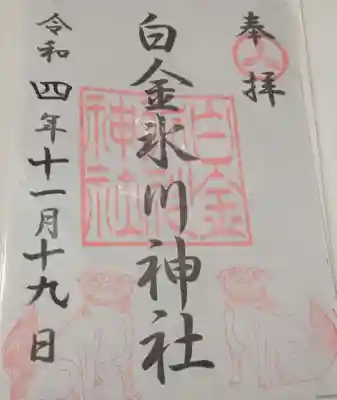 奉拝
白金氷川神社
令和四年十一月十九日
白金
氷川
神社